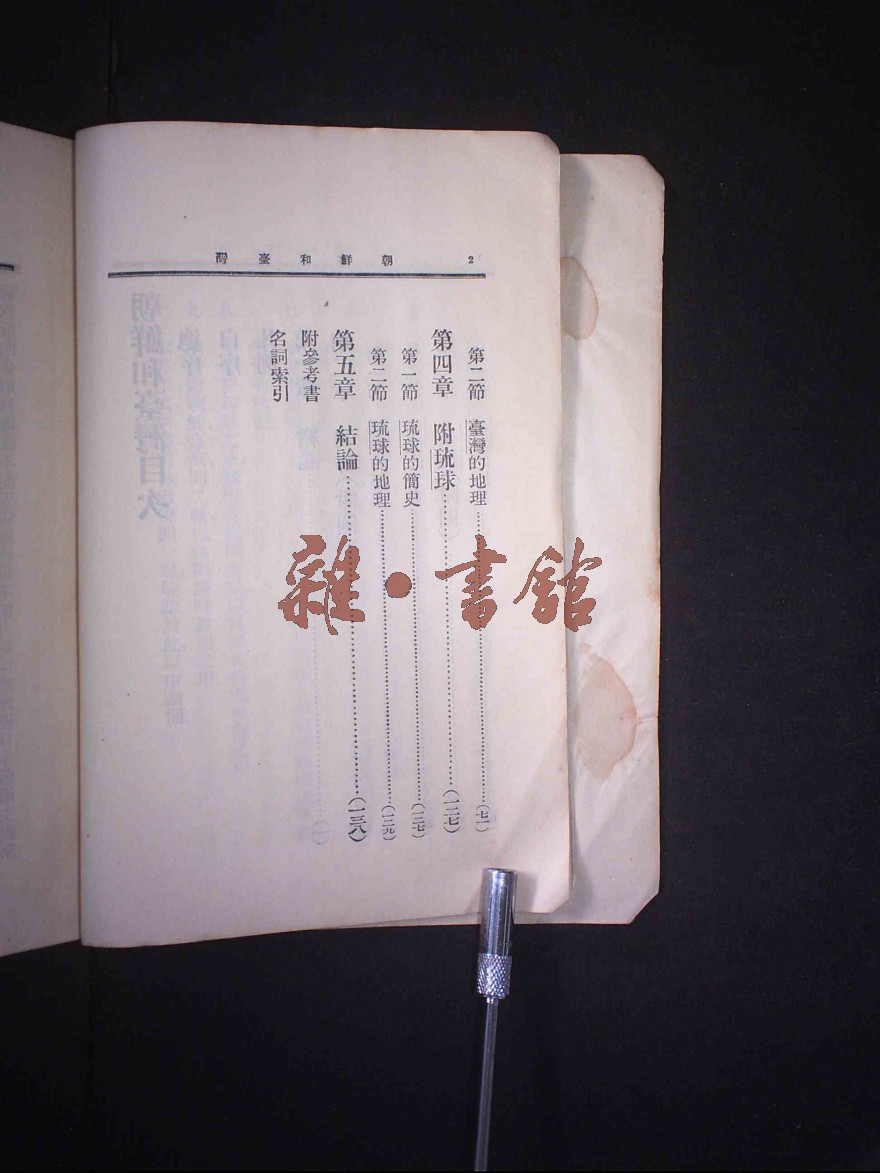 朝鮮和臺灣 2
第二節 臺灣的地理……（七一）
第四章 附琉球……（一二七）
第一節 琉球的簡史……（一二七）
第二節 琉球的地理……（一二九）
第五章 結論……（一三八）
附參考書
名詞索引
雜·書館
朝鮮和臺灣目次
總序
自序